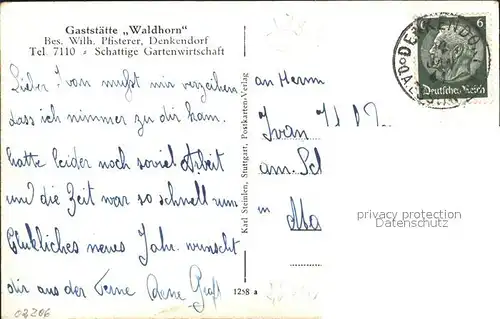 Gaststätte „Waldhorn"
Bes. Wilh. Pfisterer, Denkendorf
Tel. 7110 - Schattige Gartenwirtschaft
Lieber Ivan mußt mir verzeihen
dass ich nimmer zu dir kam.
hatte leider noch soviel Arbeit
und die Zeit war so schnell rum
Glükliches neues Jahr. wünscht
dir aus der Ferne
02206
Karl Steinlen, Stuttgart, Postkarten-Verlag
1258 a
an Herrn
Ivan
am
in
6
Deutsches Reich
DENKENDORF
privacy protection
Datenschutz